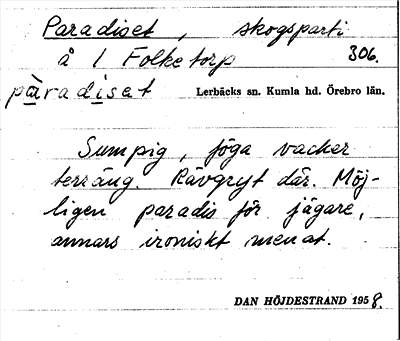 Paradiset, skogsparti
å 1 Folketorp 306.
pàradiset Lerbäcks sn. Kumla hd. Örebro län.
Sumpig, föga vacker
terräng. Rävgryt där. Möj-
ligen paradis för jägare,
annars ironiskt menat.
DAN HÖJDESTRAND 1958.